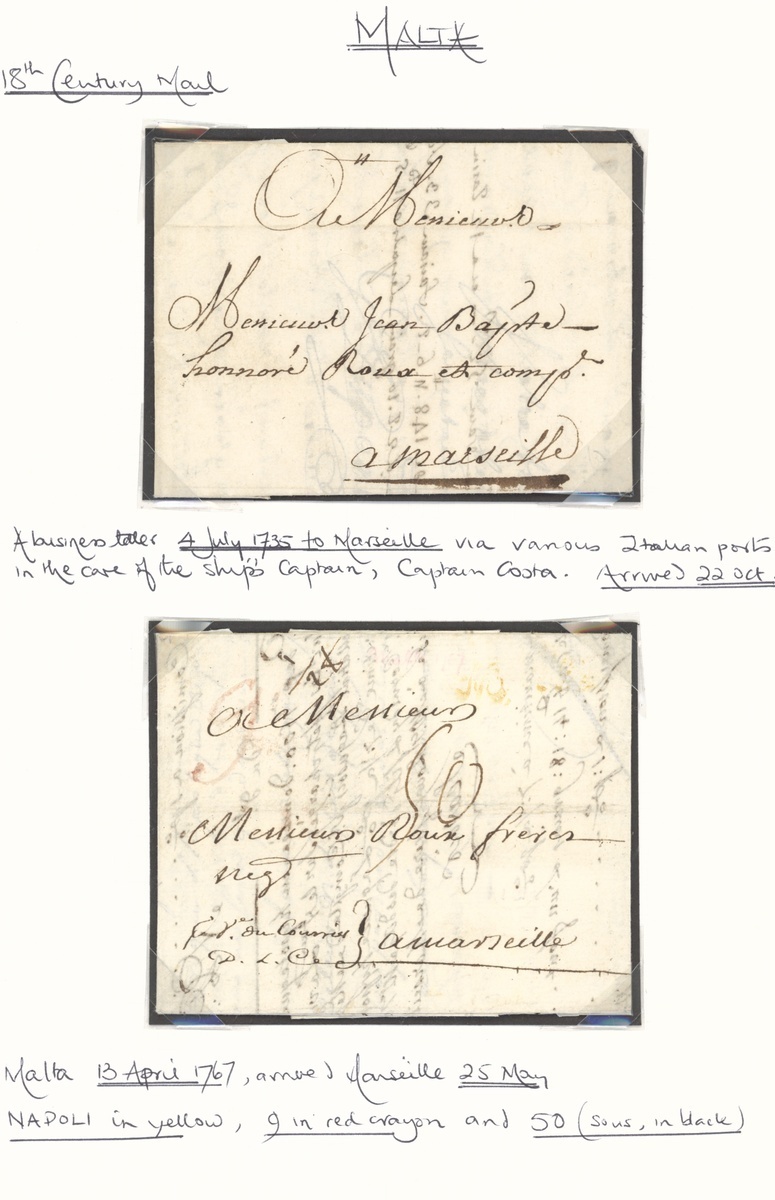 MALTA
18th Century Mail
A Messieurs
Messieurs Jean Bapte
honnoré Roux et compe.
a marseille
A business letter 4 July 1735 to Marseille via various Italian ports
in the care of the ship's Captain, Captain Costa. Arrived 22 Oct.
A Messieurs
50
Messieurs Roux freres
negt
du Courrier
D. L. Ce
a marseille
Malta 13 April 1767, arrived Marseille 25 May
NAPOLI in yellow, 9 in red crayon and 50 (sous, in black)